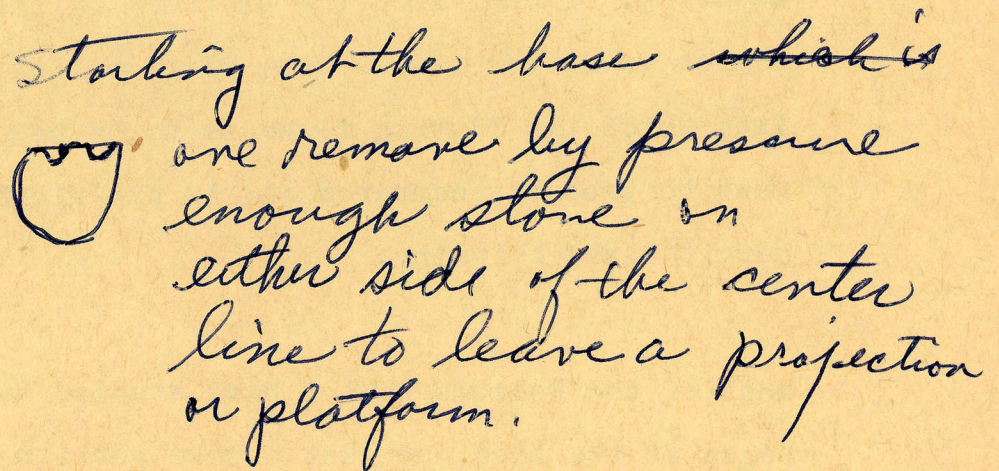 Starting at the base which is
one remove by pressure
enough stone on
either side of the center
line to leave a projection
or platform.